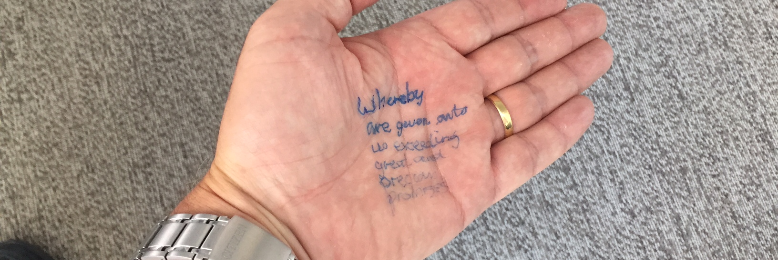 Whereby
are given unto
us exceeding
great and
precious
promises